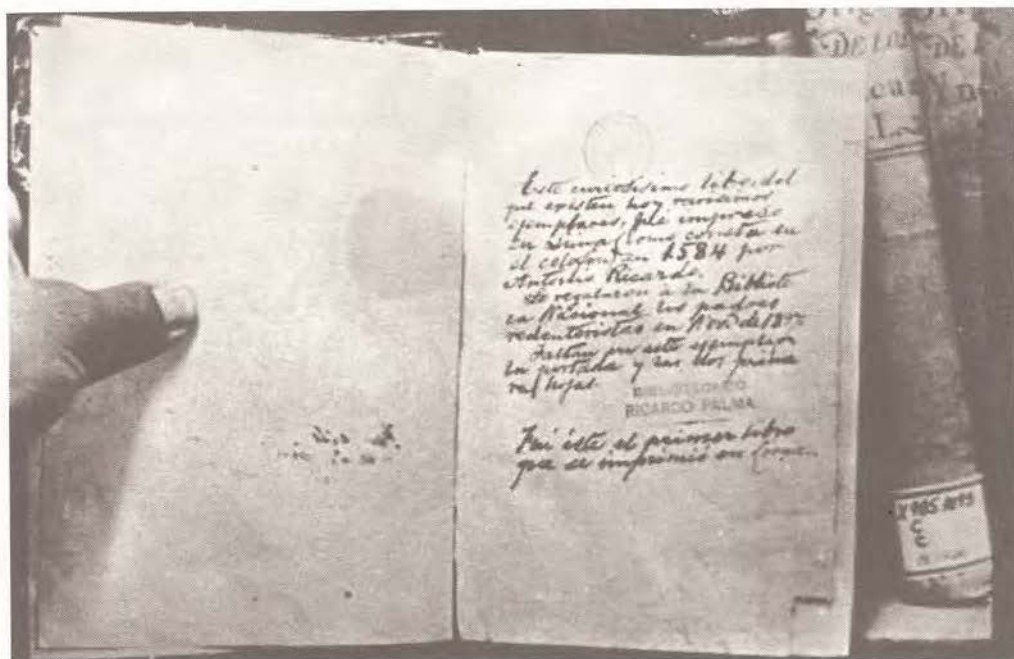 Este curiosísimo libro, del
que existen hoy rarísimos
ejemplares, fué impreso
en Lima (como consta en
el colofon) en 1584 por
Antonio Ricardo.
Lo regalaron á la Bibliote
ca Nacional los padres
redentoristas en Nov. de
Faltan en este ejemplar
la portada y las dos prime
ras hojas.
BIBLIOTECARIO
RICARDO PALMA
Fué éste el primer libro
que se imprimió en
DE LOS
DE L
X985.
C
C